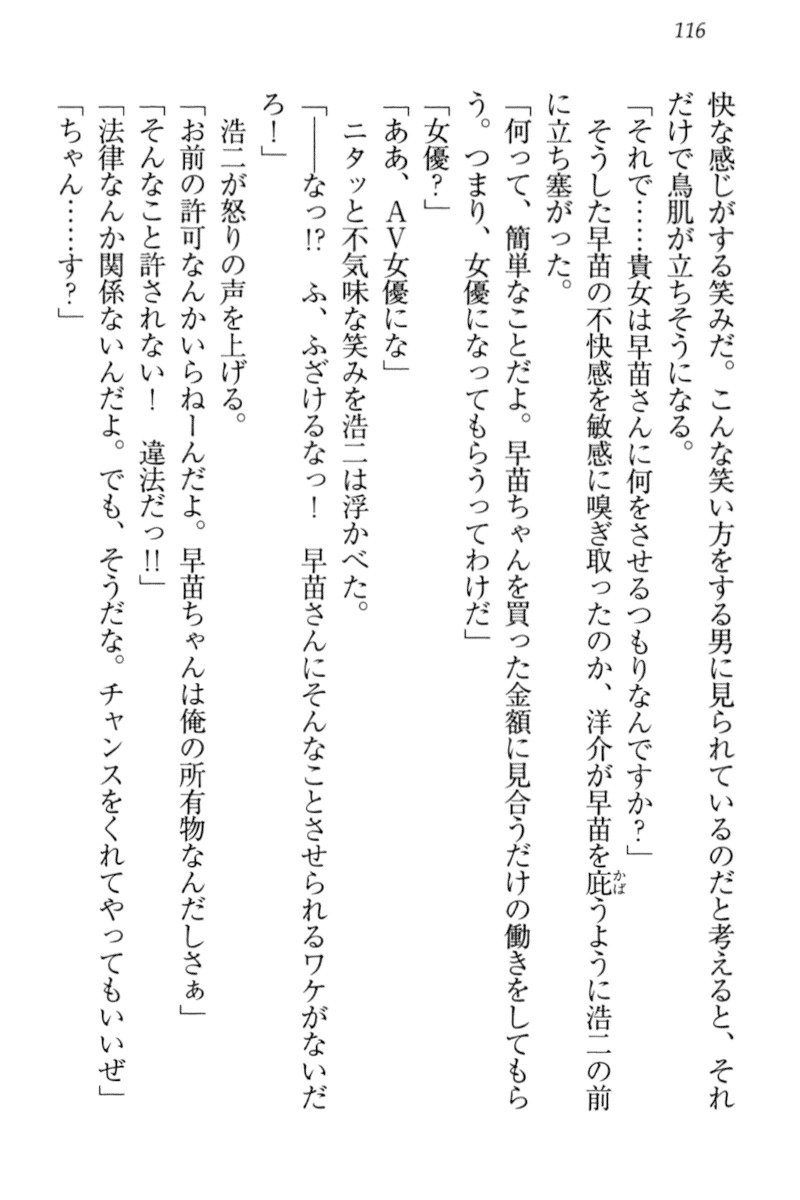 116
快な感じがする笑みだ。こんな笑い方をする男に見られているのだと考えると、それ
だけで鳥肌が立ちそうになる。
「それで……貴女は早苗さんに何をさせるつもりなんですか？」
そうした早苗の不快感を敏感に嗅ぎ取ったのか、洋介が早苗を庇うように浩二の前
かば
に立ち塞がった。
「何って、簡単なことだよ。早苗ちゃんを買った金額に見合うだけの働きをしてもら
う。つまり、女優になってもらうってわけだ」
「女優？」
「ああ、ＡＶ女優にな」
ニタッと不気味な笑みを浩二は浮かべた。
「――なっ!?　ふ、ふざけるなっ！　早苗さんにそんなことさせられるワケがないだ
ろ！」
浩二が怒りの声を上げる。
「お前の許可なんかいらねーんだよ。早苗ちゃんは俺の所有物なんだしさぁ」
「そんなこと許されない！　違法だっ!!」
「法律なんか関係ないんだよ。でも、そうだな。チャンスをくれてやってもいいぜ」
「ちゃん……す？」